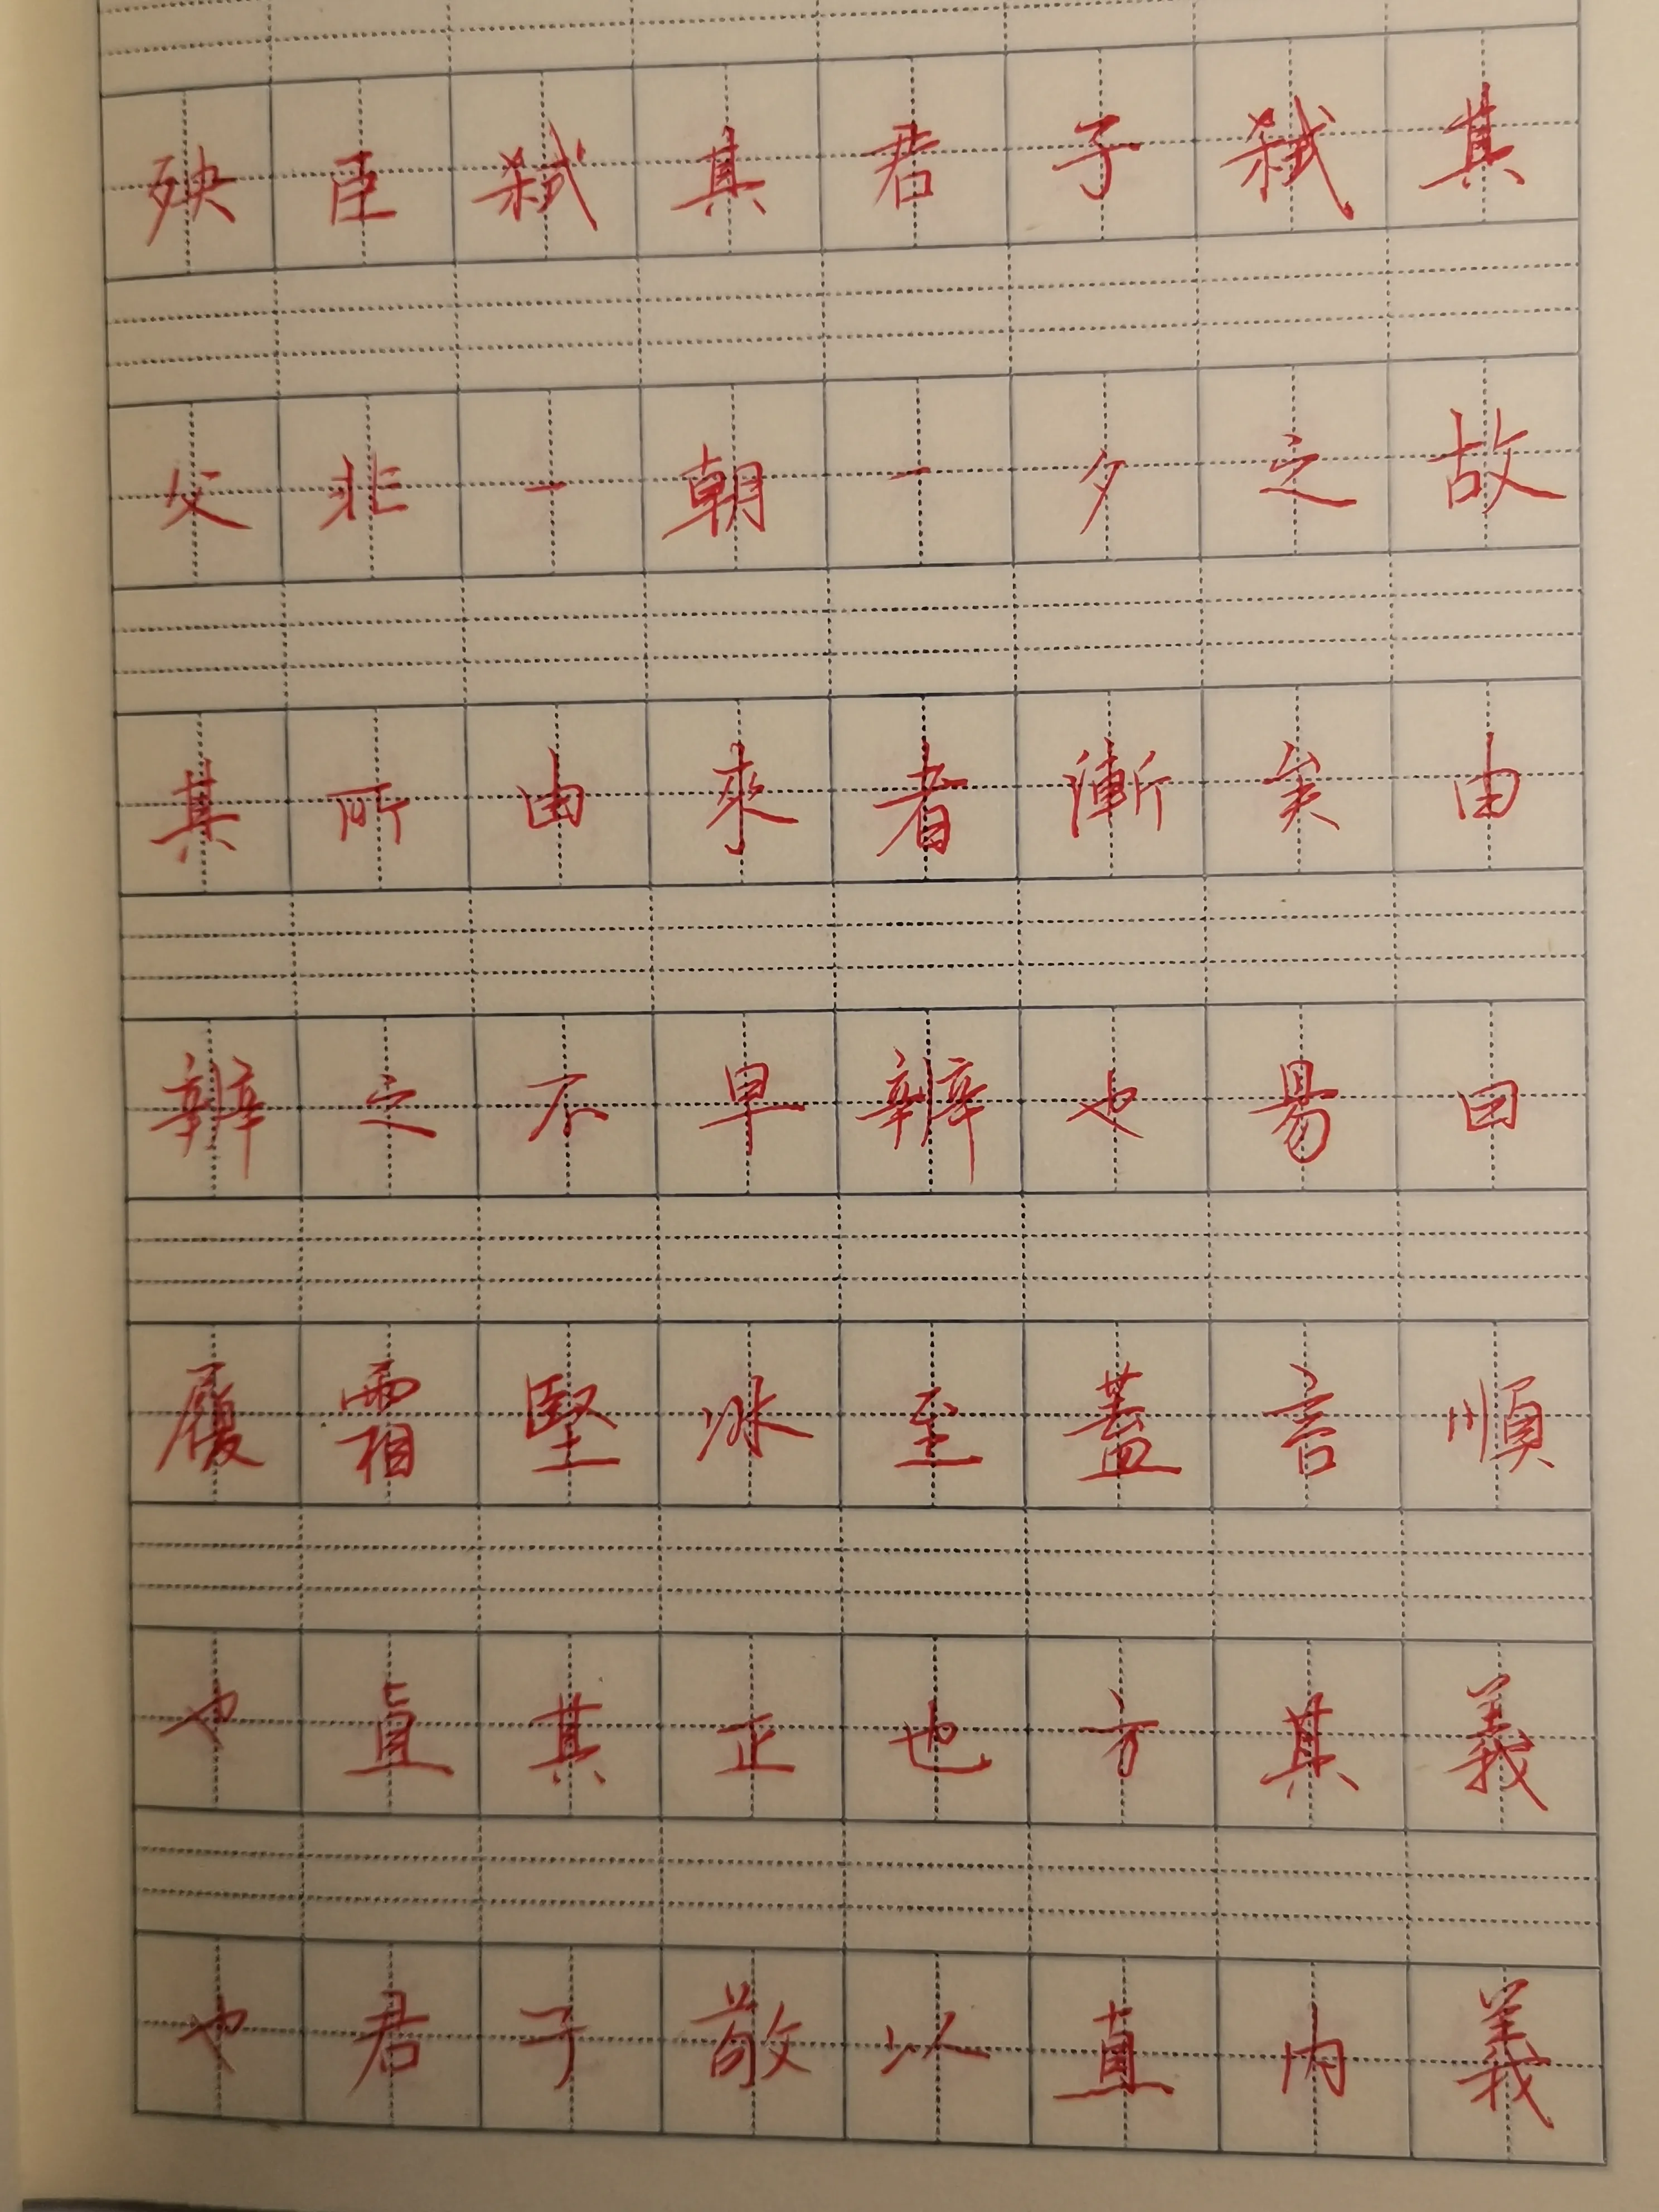 殃臣弑其君子弑其
父非一朝一夕之故
其所由來者漸矣由
辨之不早辨也易曰
履霜堅冰至蓋言順
也直其正也方其義
也君子敬以直內義